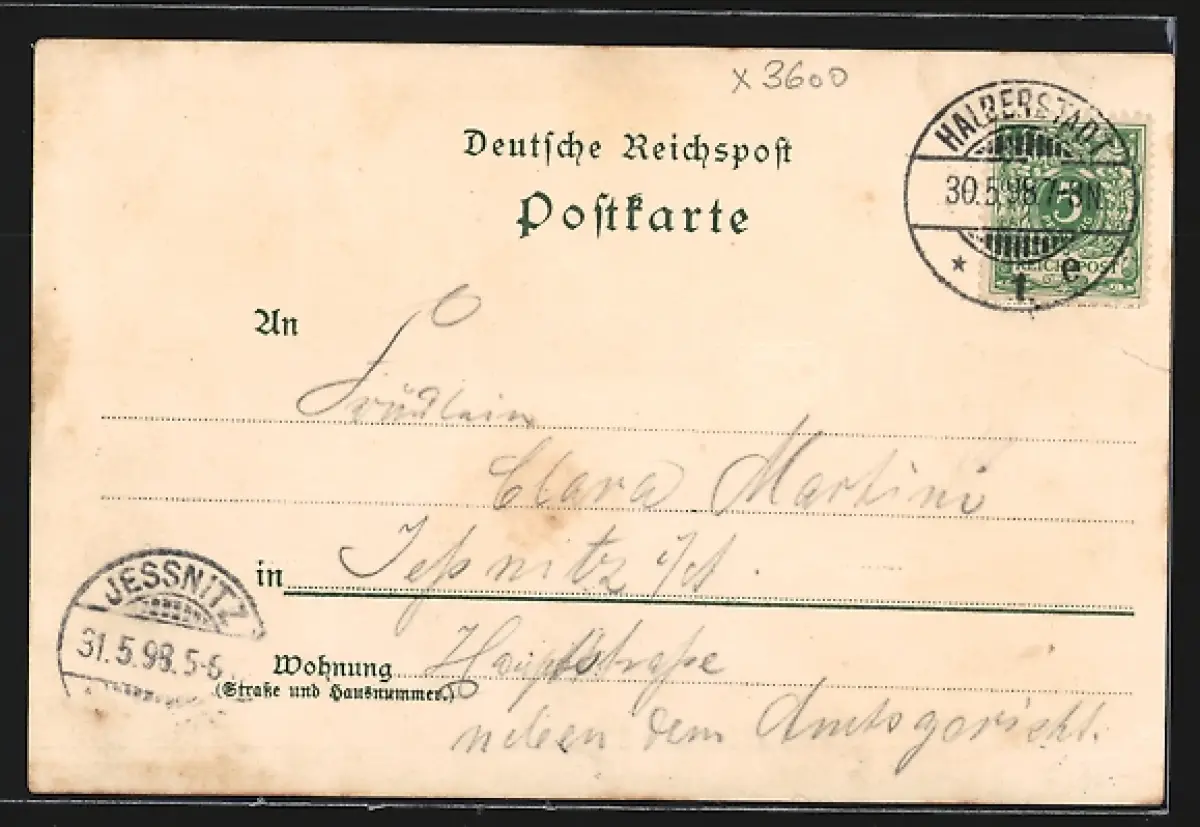 x 3600
Deutsche Reichspost
Postkarte
HALBERSTADT
30.5.98.7-8N.
* 1 e
5
REICHSPOST
An
Fräulein
Clara Martini
in Jeßnitz i/A.
JESSNITZ
31.5.98.5-6
Wohnung Hauptstraße
(Straße und Hausnummer.)
neben dem Amtsgericht.